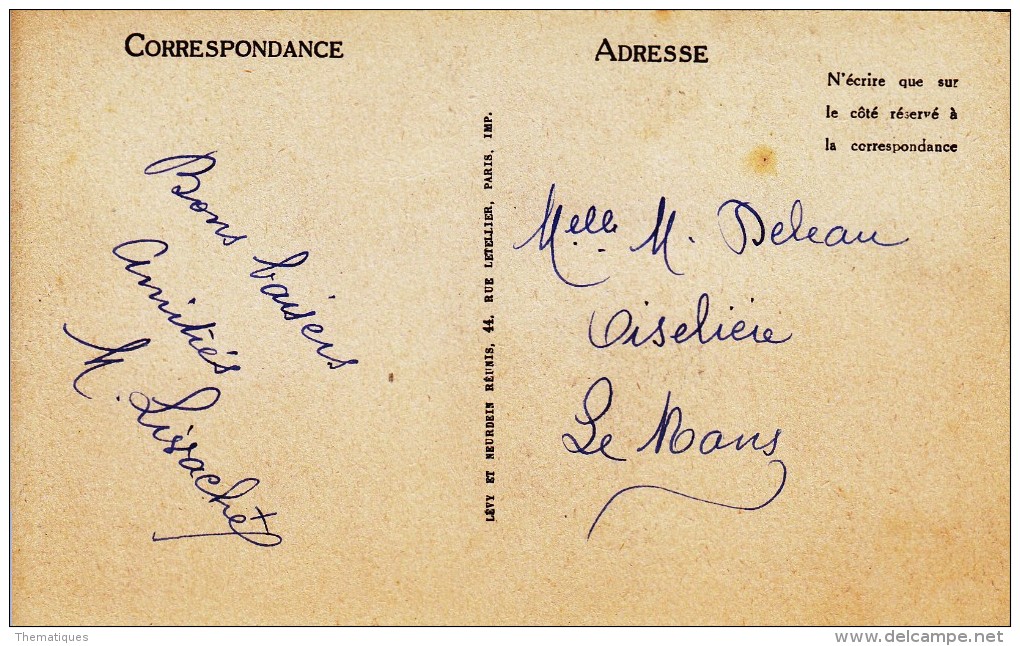 CORRESPONDANCE
Bons baisers
Amitiés
M. Lissachet
LÉVY ET NEURDEIN RÉUNIS, 44, RUE LETELLIER, PARIS, IMP.
ADRESSE
N'écrire que sur
le côté réservé à
la correspondance
Melle M. Deleau
Oiselière
Le Mans
Thematiques
www.delcampe.net